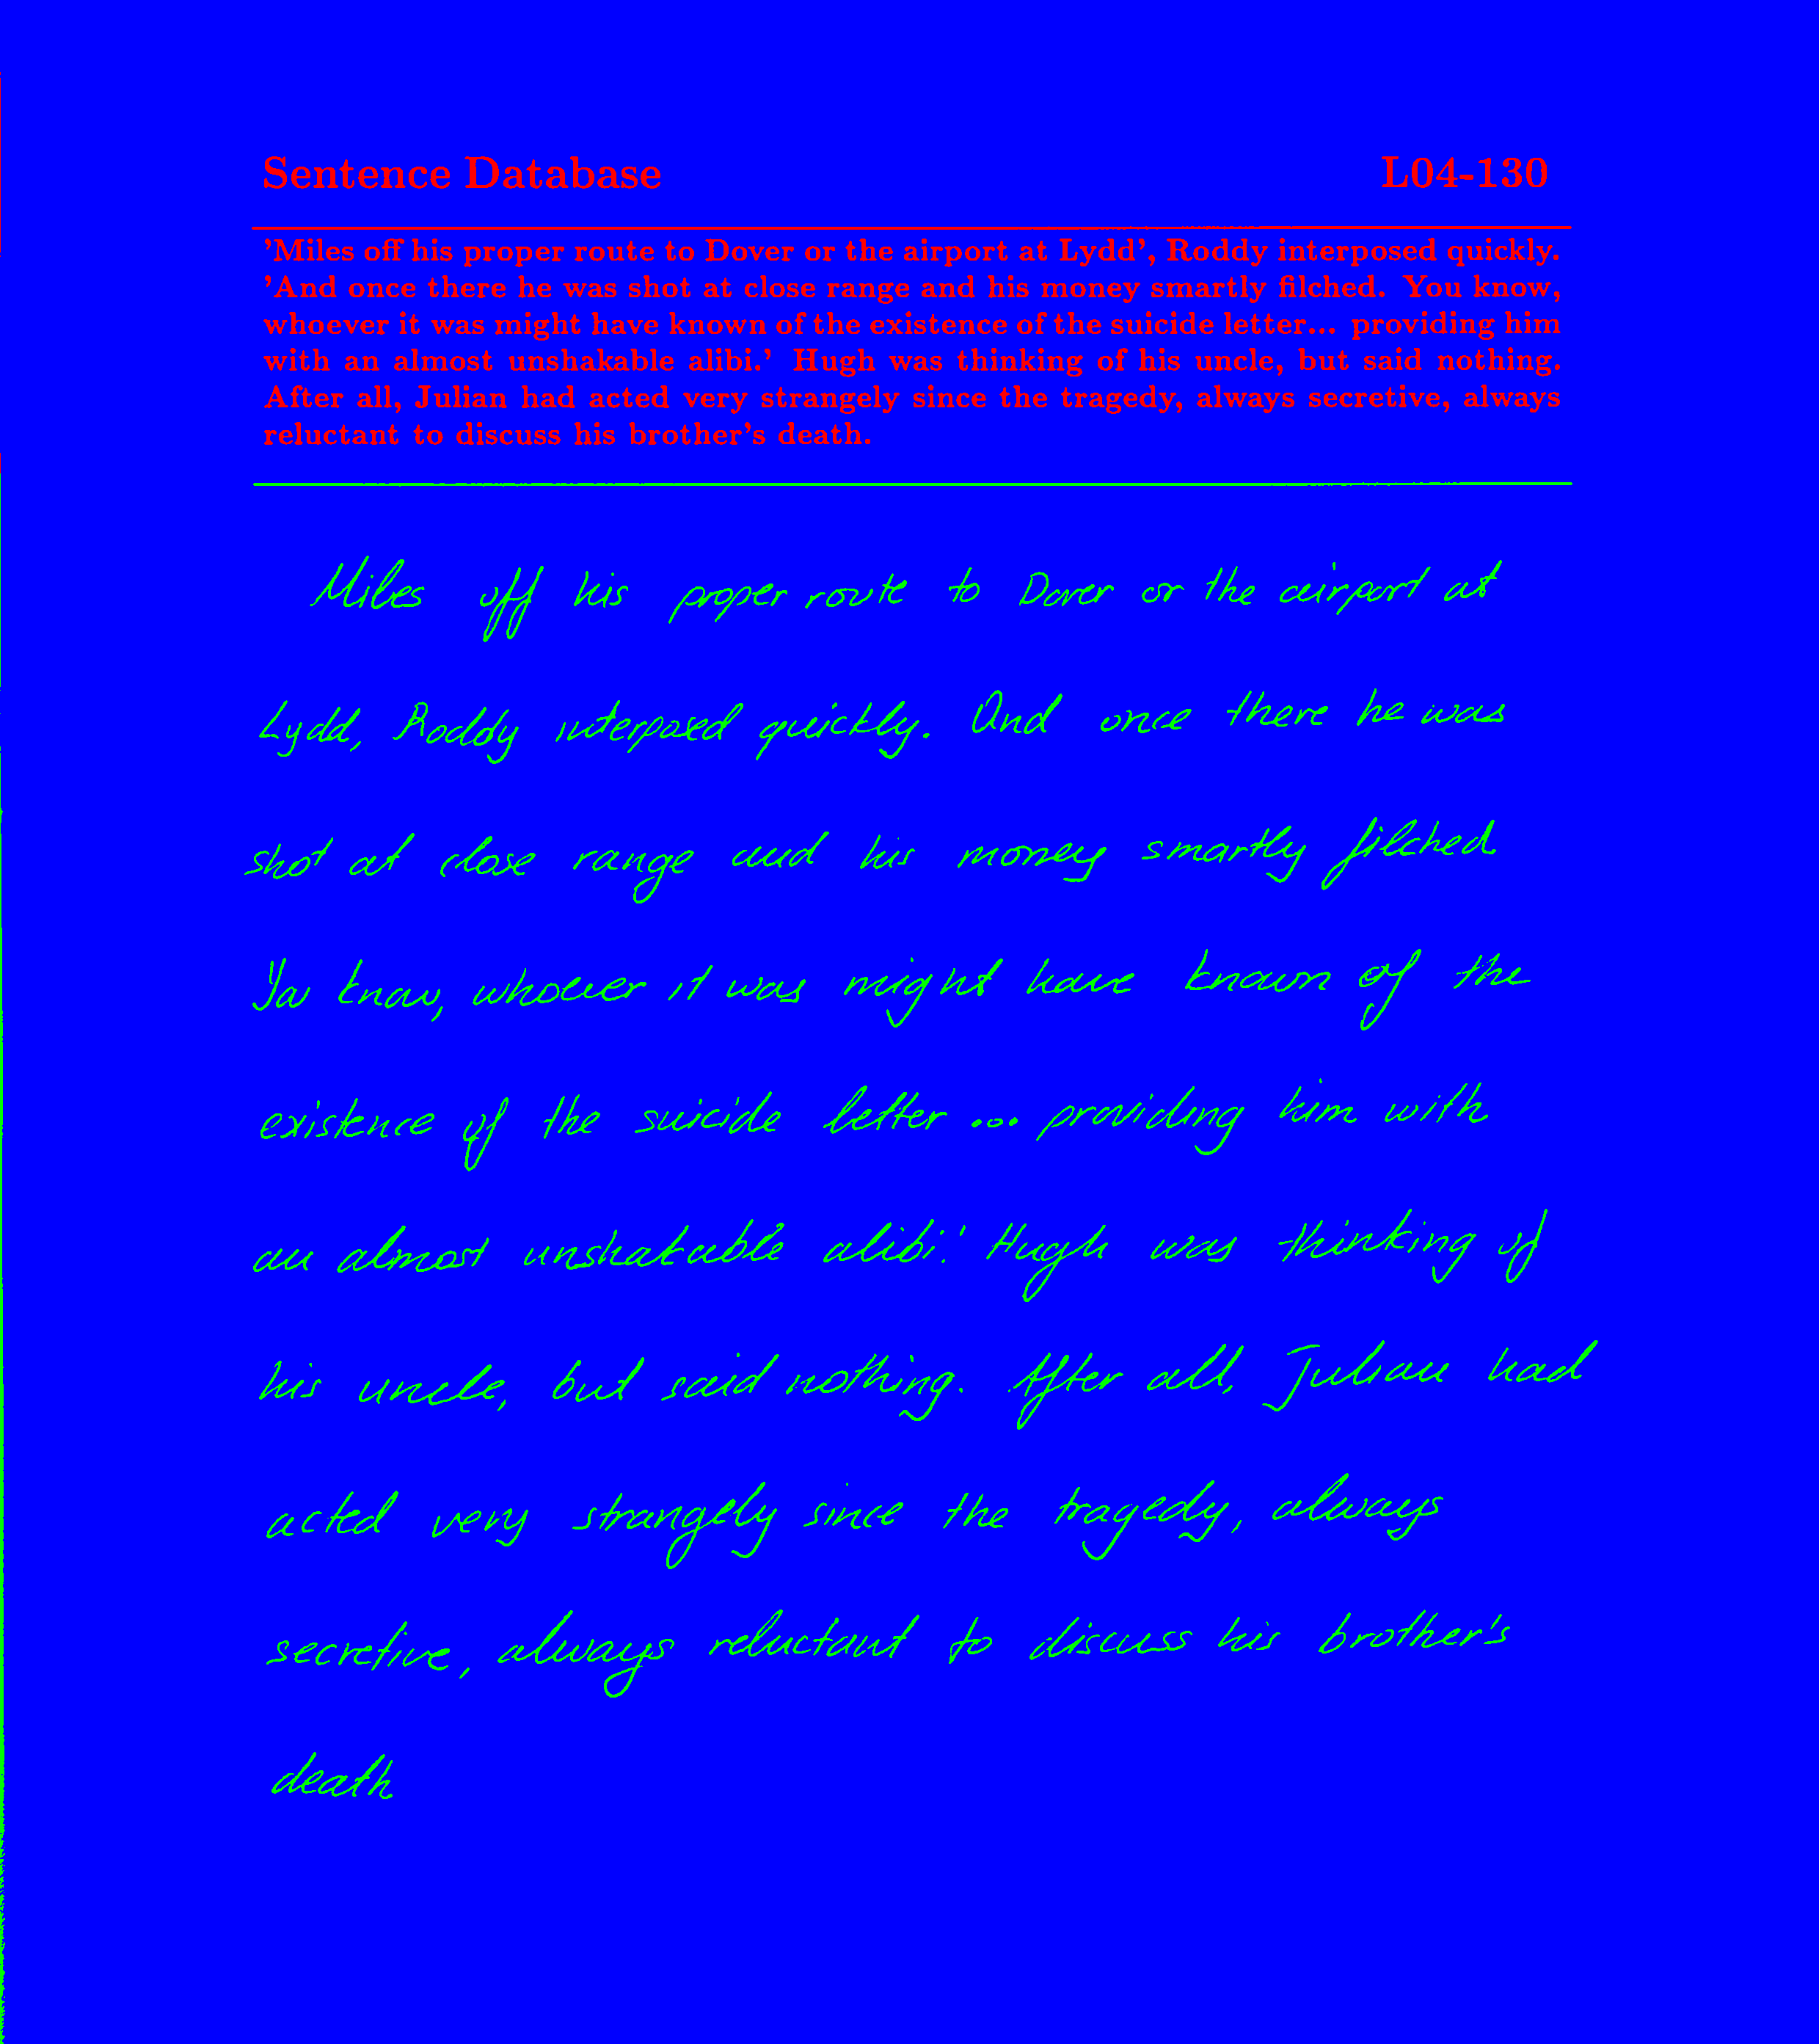 Sentence Database L04-130
'Miles off his proper route to Dover or the airport at Lydd', Roddy interposed quickly.
'And once there he was shot at close range and his money smartly filched. You know,
whoever it was might have known of the existence of the suicide letter... providing him
with an almost unshakable alibi.' Hugh was thinking of his uncle, but said nothing.
After all, Julian had acted very strangely since the tragedy, always secretive, always
reluctant to discuss his brother's death.
Miles off his proper route to Dover or the airport at
Lydd, Roddy interposed quickly. And once there he was
shot at close range and his money smartly filched
You know, whoever it was might have known of the
existence of the suicide letter ... providing him with
an almost unshakable alibi.' Hugh was thinking of
his uncle, but said nothing. After all, Julian had
acted very strangely since the tragedy, always
secretive, always reluctant to discuss his brother's
death